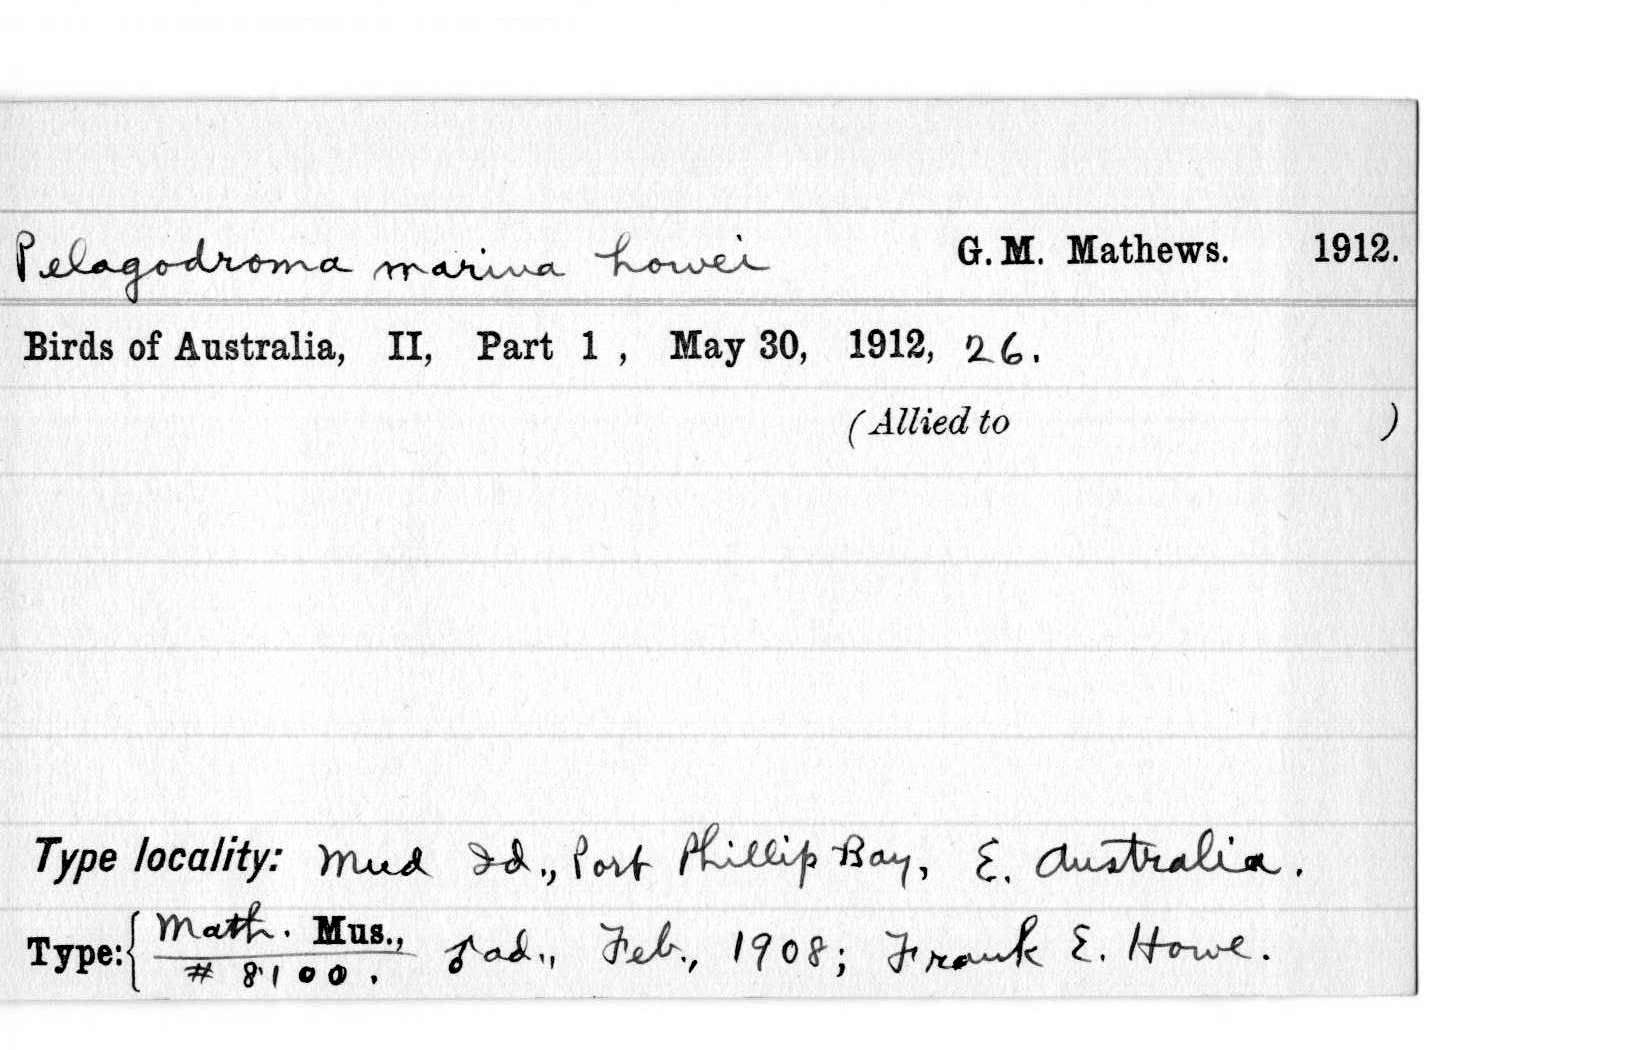 Pelagodroma marina howei G. M. Mathews. 1912.
Birds of Australia, II, Part 1 , May 30, 1912, 26.
(Allied to )
Type locality: Mud Id., Port Phillip Bay, E. Australia.
Type: { Math. Mus.,
# 8100.
♂ ad., Feb., 1908; Frank E. Howe.